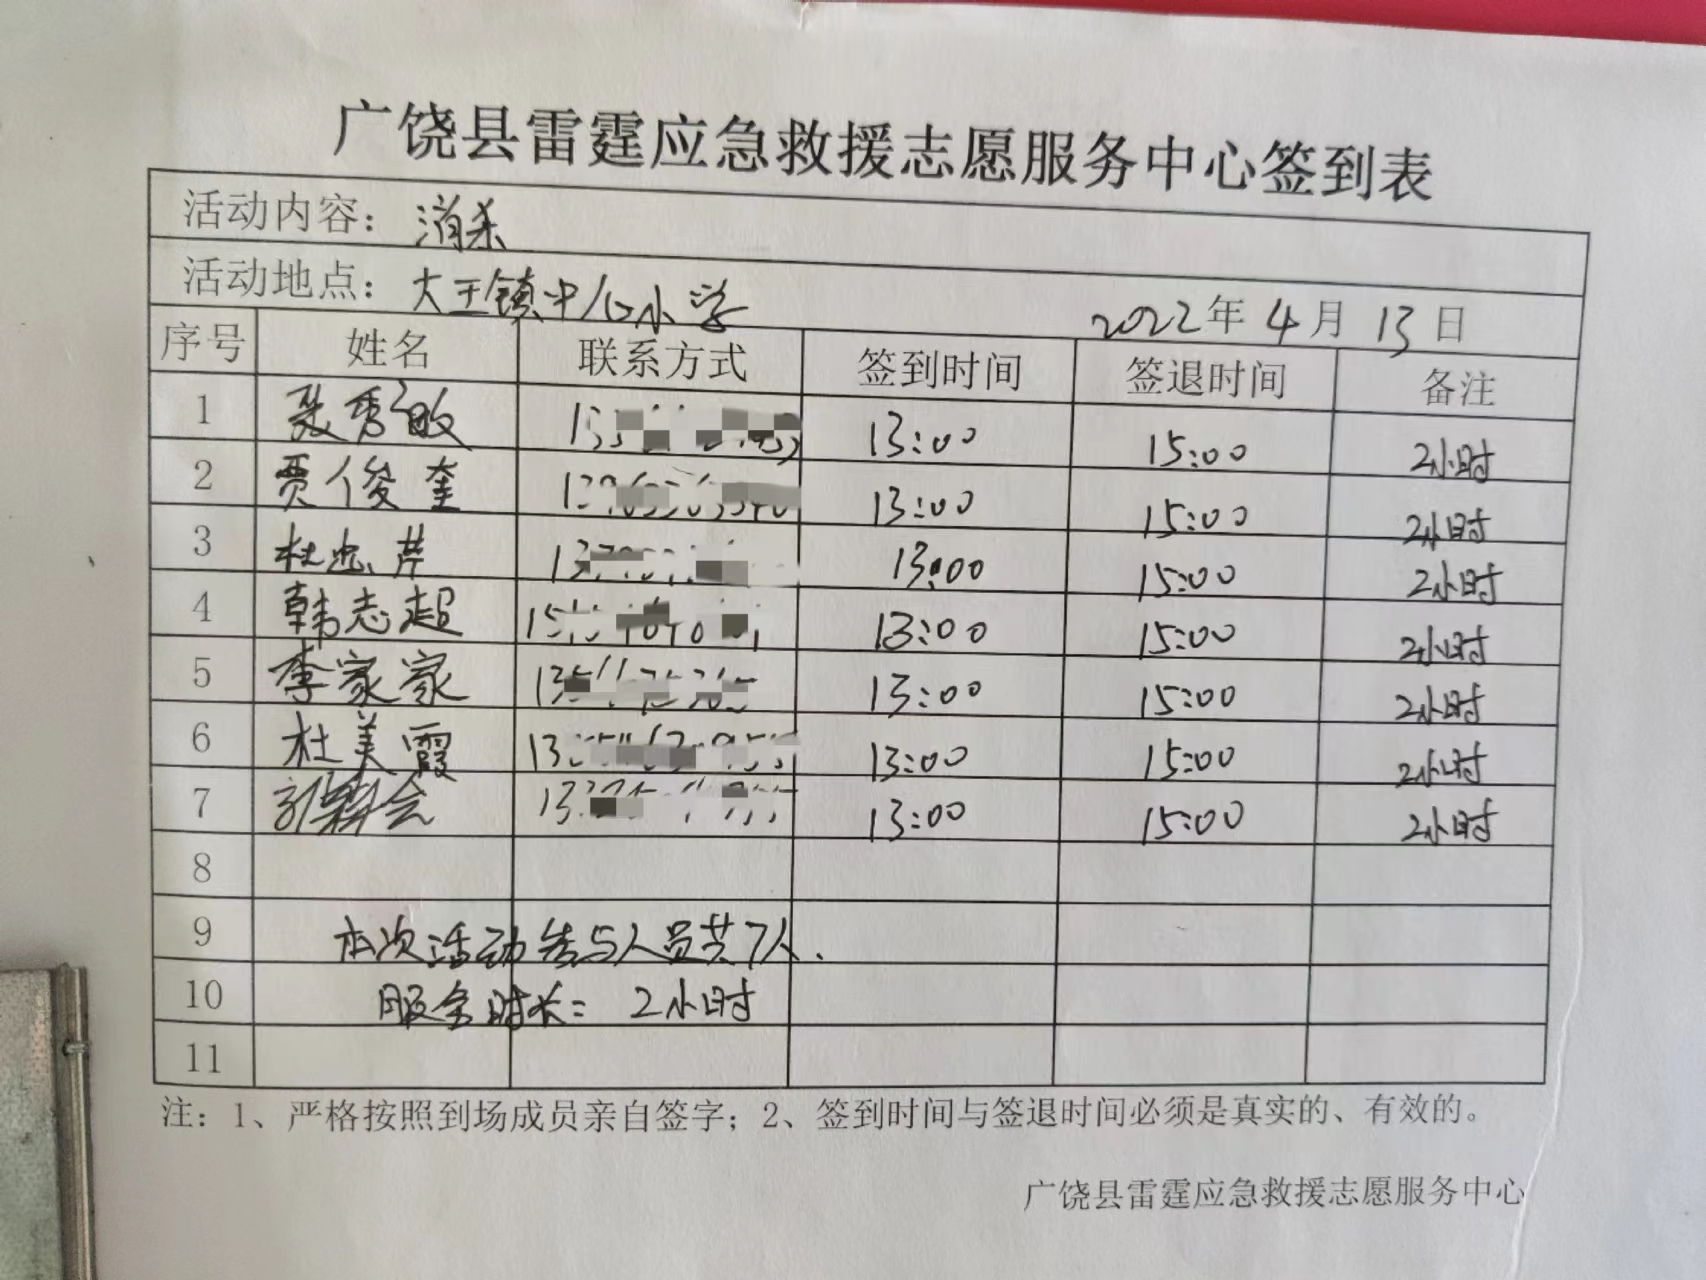 广饶县雷霆应急救援志愿服务中心签到表
活动内容：消杀
活动地点：大王镇中心小学 2022年4月13日
序号 姓名 联系方式 签到时间 签退时间 备注
1 秀敏 13:00 15:00 2小时
2 贾俊奎 13:00 15:00 2小时
3 杜忠芹 13:00 15:00 2小时
4 韩志超 13:00 15:00 2小时
5 李家家 13:00 15:00 2小时
6 杜美霞 13:00 15:00 2小时
7 13:00 15:00 2小时
8
9 本次活动参与人员共7人.
10 服务时长: 2小时
11
注：1、严格按照到场成员亲自签字；2、签到时间与签退时间必须是真实的、有效的。
广饶县雷霆应急救援志愿服务中心